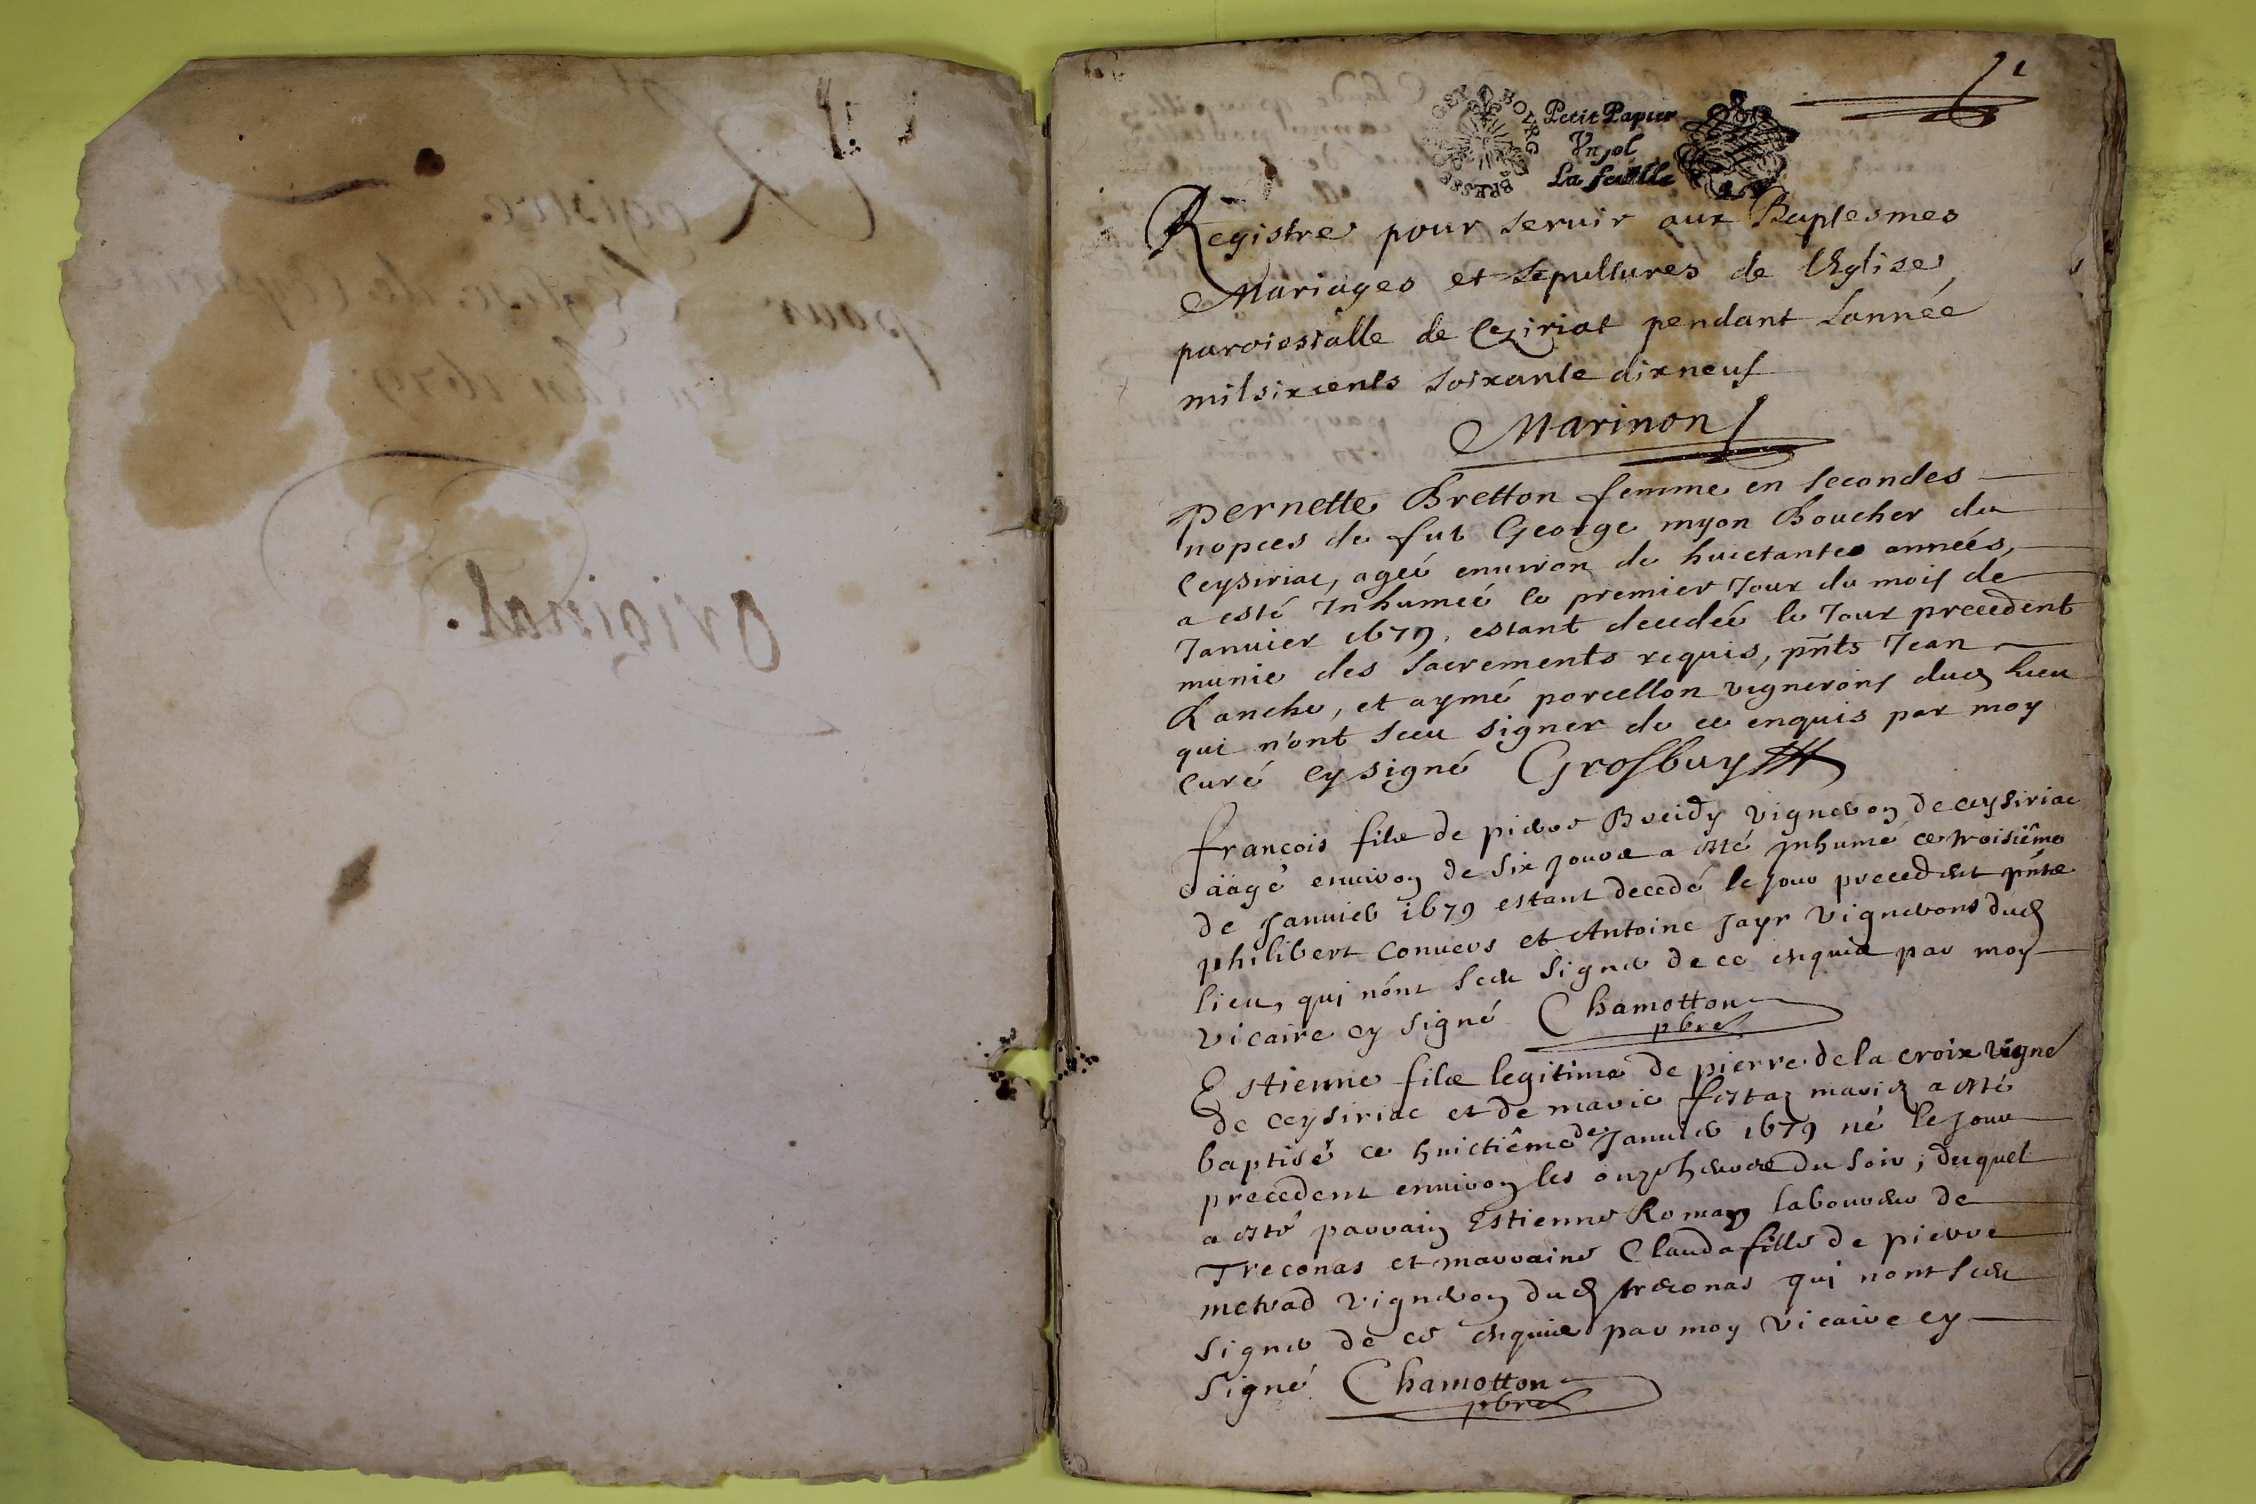 Registre
pour l'Eglise de Ceyseriat
en l'an 1679
original.
1
BRESSE BVGEY BOVRG
Petit Papier
Vn sol
La feuille
Registre pour seruir aux Baptesmes
Mariages et sepultures de l'Eglise
paroissialle de Ceziriat pendant Lannée
mil six cents soixante dix neuf
Marinon
pernette Bretton femme en secondes
nopces de fut George myon Boucher du
Ceysiriac, ageé enuiron de huictantes anneés,
a esté Inhumeé le premier Jour du mois de
Januier 1679, estant decedeé le Jour precedent
munie des sacrements requis, pnts Jean
Lanche, et aymé porcellon vignerons dud lieu
qui n'ont sceu signer de ce enquis par moy
Curé cy signé Grosbuy
francois fils de pierre Breidy vigneron de ceysiriac
aägé enuiron de six jours a esté jnhumé ce troisiême
de Januier 1679 estant decedé le jour precedent pnts
philibert Conuers et Antoine Jayr vignerons dud
lieu, qui nónt sceu signer de ce enquis par moy
vicaire cy signé Chamotton
pbre
Estienne fils legitime de pierre de la croix vigne
de ceysiriac et de marie mariez a esté
baptisé ce huictiême de Januier 1679 né le jour
precedent enuiron les onze heures du soir; duquel
a esté parrain Estienne Roman laboureur de
Treconas et marraine Clauda fille de pierre
metrad vigneron dud treconas qui nont sceu
signer de ce enquis par moy vicaire cy
signé Chamotton
pbre